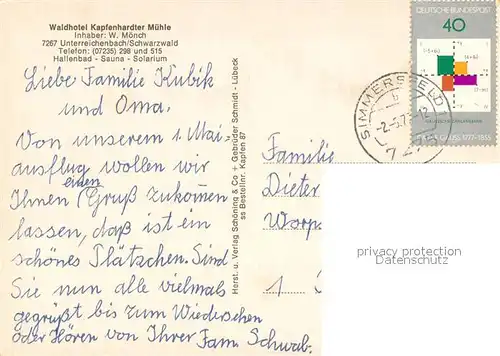 Waldhotel Kapfenhardter Mühle
Inhaber: W. Mönch
7267 Unterreichenbach/Schwarzwald
Telefon: (07235) 298 und 515
Hallenbad - Sauna - Solarium
Liebe Familie Kubik
und Oma.
Von unserem 1. Mai-
ausflug wollen wir
Ihnen einen Gruß zukommen
lassen, daß ist ein
schönes Plätzchen. Sind
Sie nun alle vielmals
gegrüßt bis zum Wiedersehen
oder Hören von Ihrer Fam. Schwab.
Herst. u. Verlag Schöning & Co + Gebrüder Schmidt - Lübeck
ss Bestellnr. Kapfen 87
DEUTSCHE BUNDESPOST
40
SIMMERSFELD
Familie
Dieter
Worp
1
privacy protection
(APDC VSM)